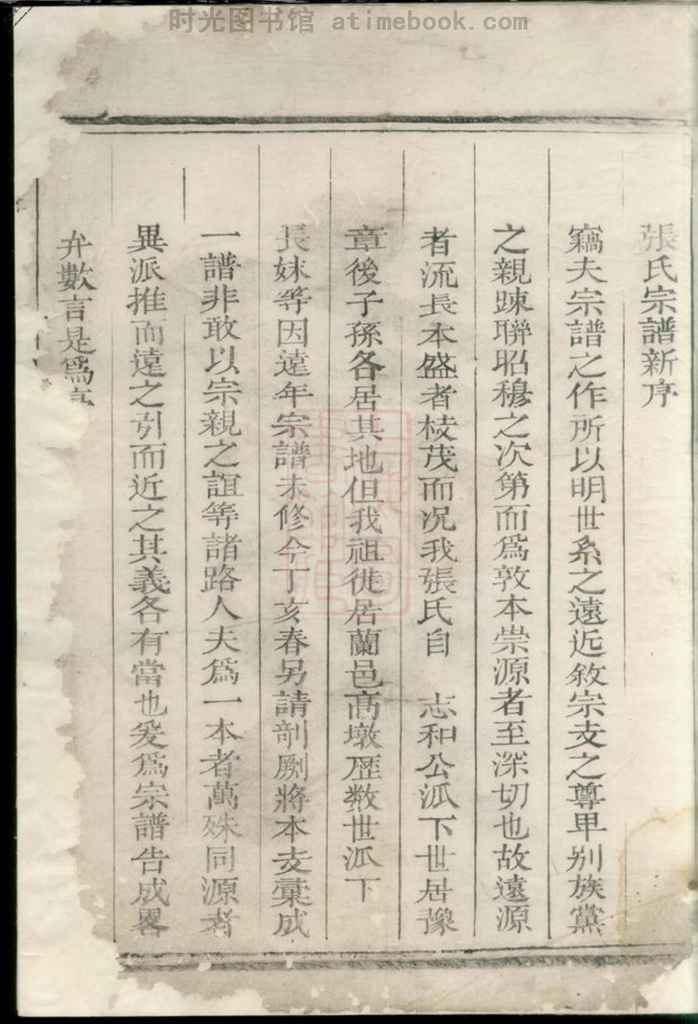 时光图书馆 atimebook.com
張氏宗譜新序
竊夫宗譜之作所以明世系之遠近敘宗支之尊卑别族黨
之親踈聯昭穆之次第而為敦本崇源者至深切也故遠源
者流長本盛者枝茂而况我張氏自 志和公派下世居豫
章後子孫各居其地但我祖徙居蘭邑髙墩歷数世派下
長妹等因遠年宗譜未修今丁亥春另請剞劂將本支彙成
一譜非敢以宗親之誼等諸路人夫為一本者萬殊同源者
異派推而遠之引而近之其義各有當也爰為宗譜告成畧
弁數言是為